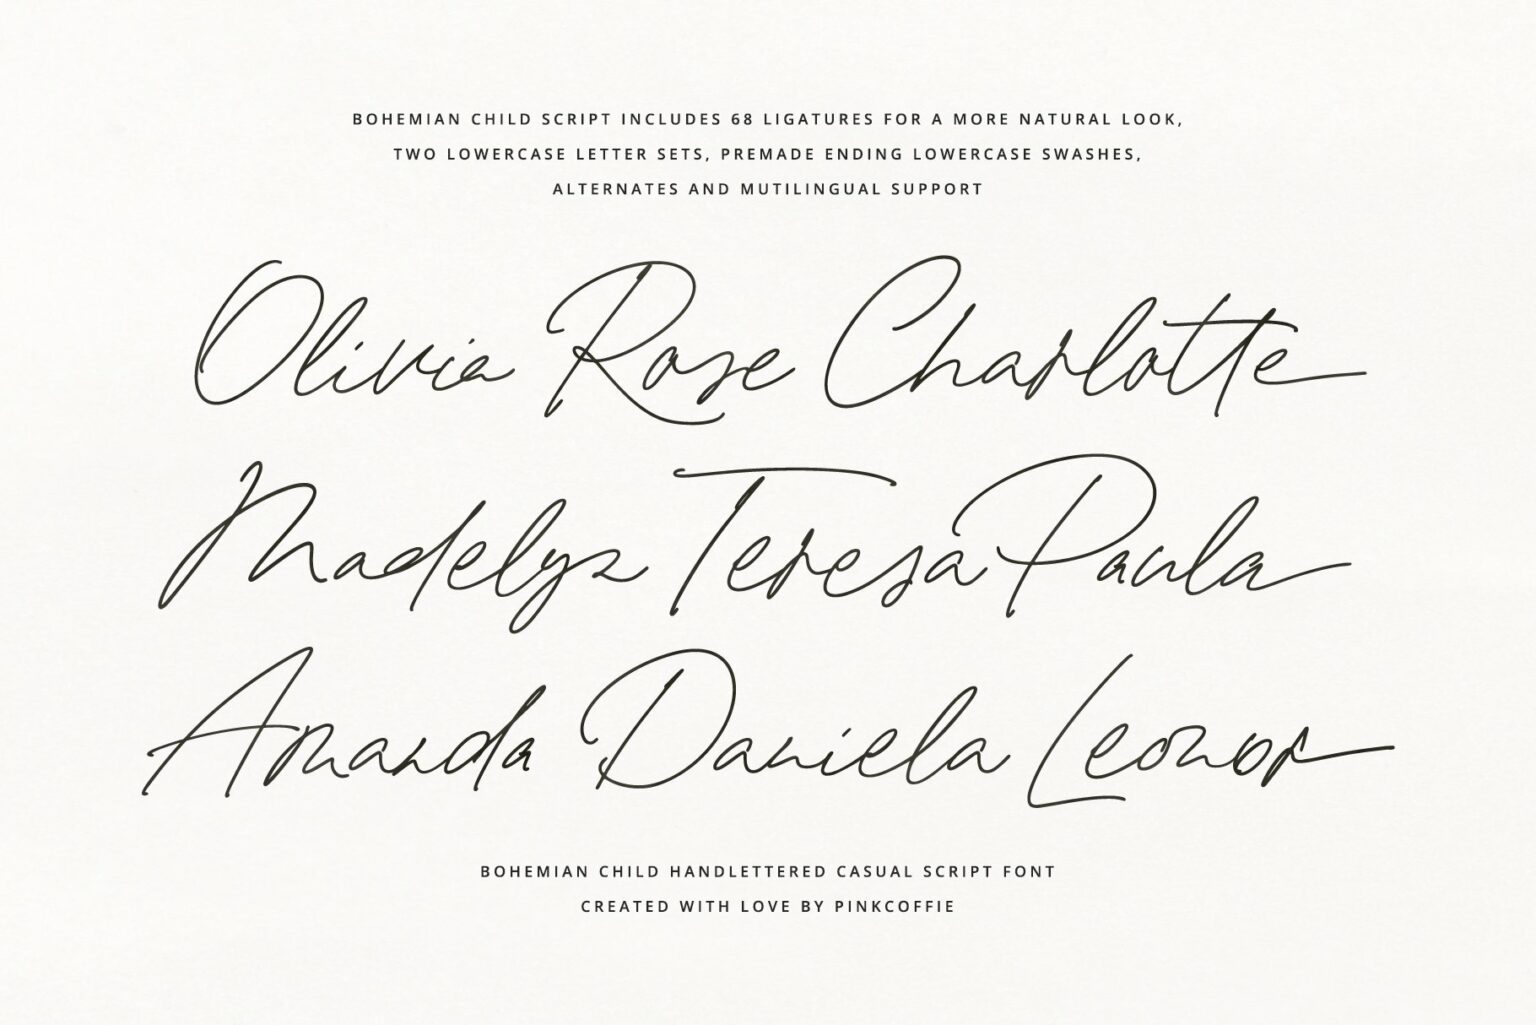 BOHEMIAN CHILD SCRIPT INCLUDES 68 LIGATURES FOR A MORE NATURAL LOOK,
TWO LOWERCASE LETTER SETS, PREMADE ENDING LOWERCASE SWASHES,
ALTERNATES AND MUTILINGUAL SUPPORT
Olivia Rose Charlotte
Madelyn Teresa Paula
Amanda Daniela Leonor
BOHEMIAN CHILD HANDLETTERED CASUAL SCRIPT FONT
CREATED WITH LOVE BY PINKCOFFIE